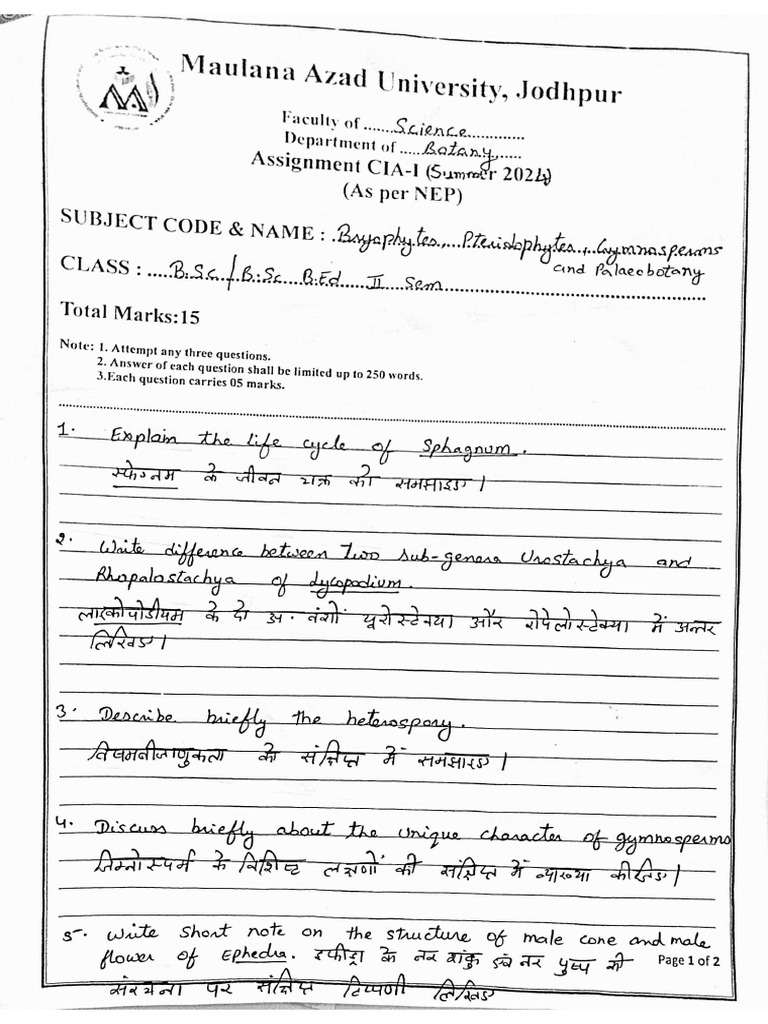 Maulana Azad University, Jodhpur
Faculty of ...... Science ............
Department of ..... Botany ......
Assignment CIA-I (Summer 2024)
(As per NEP)
SUBJECT CODE & NAME : . Bryophytes, ... Pteridophytes, . Gymnosperms
and Palaeobotany
CLASS : ..... B.Sc / B.Sc B.Ed II Sem ................................
Total Marks:15
Note: 1. Attempt any three questions.
2. Answer of each question shall be limited up to 250 words.
3.Each question carries 05 marks.
1. Explain the life cycle of Sphagnum.
स्फेग्नम के जीवन चक्र को समझाइए।
2. Write difference between two sub-genera Urostachya and
Rhopalostachya of Lycopodium.
लाइकोपोडीयम के दो अ. वंशों यूरोस्टेक्या और रोपेलोस्टेक्या में अन्तर
लिखिए।
3. Describe briefly the heterospory.
विषमबीजाणुकता को संक्षिप्त में समझाइए।
4. Discuss briefly about the unique character of gymnosperms
जिम्नोस्पर्म के विशिष्ट लक्षणों की संक्षिप्त में व्याख्या कीजिए।
5. Write short note on the structure of male cone and male
flower of Ephedra. इफीड्रा के नर शंकु एवं नर पुष्प की
संरचना पर संक्षिप्त टिप्पणी लिखिए
Page 1 of 2